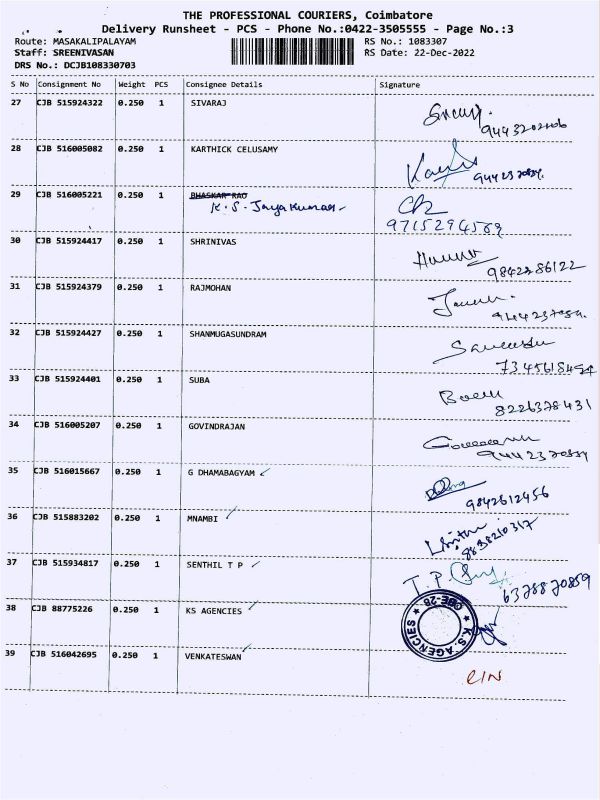 THE PROFESSIONAL COURIERS, Coimbatore
Delivery Runsheet - PCS - Phone No.:0422-3505555 - Page No.:3
Route: MASAKALIPALAYAM
RS No.: 1083307
Staff: SREENIVASAN
RS Date: 22-Dec-2022
DRS No.: DCJB108330703
S No Consignment No Weight PCS Consignee Details Signature
27 CJB 515924322 0.250 1 SIVARAJ
28 CJB 516005082 0.250 1 KARTHICK CELUSAMY
29 CJB 516005221 0.250 1 BHASKAR RAO
K.S. Jayakumar
9715294589
30 CJB 515924417 0.250 1 SHRINIVAS
9842286122
31 CJB 515924379 0.250 1 RAJMOHAN
32 CJB 515924427 0.250 1 SHANMUGASUNDRAM
7345618494
33 CJB 515924401 0.250 1 SUBA
8226378431
34 CJB 516005207 0.250 1 GOVINDRAJAN
35 CJB 516015667 0.250 1 G DHAMABAGYAM
9842612456
36 CJB 515883202 0.250 1 MNAMBI
8838210317
37 CJB 515934817 0.250 1 SENTHIL T P
T.P.
6378870859
38 CJB 88775226 0.250 1 KS AGENCIES
K.S. AGENCIES CBE-28
39 CJB 516042695 0.250 1 VENKATESWAN